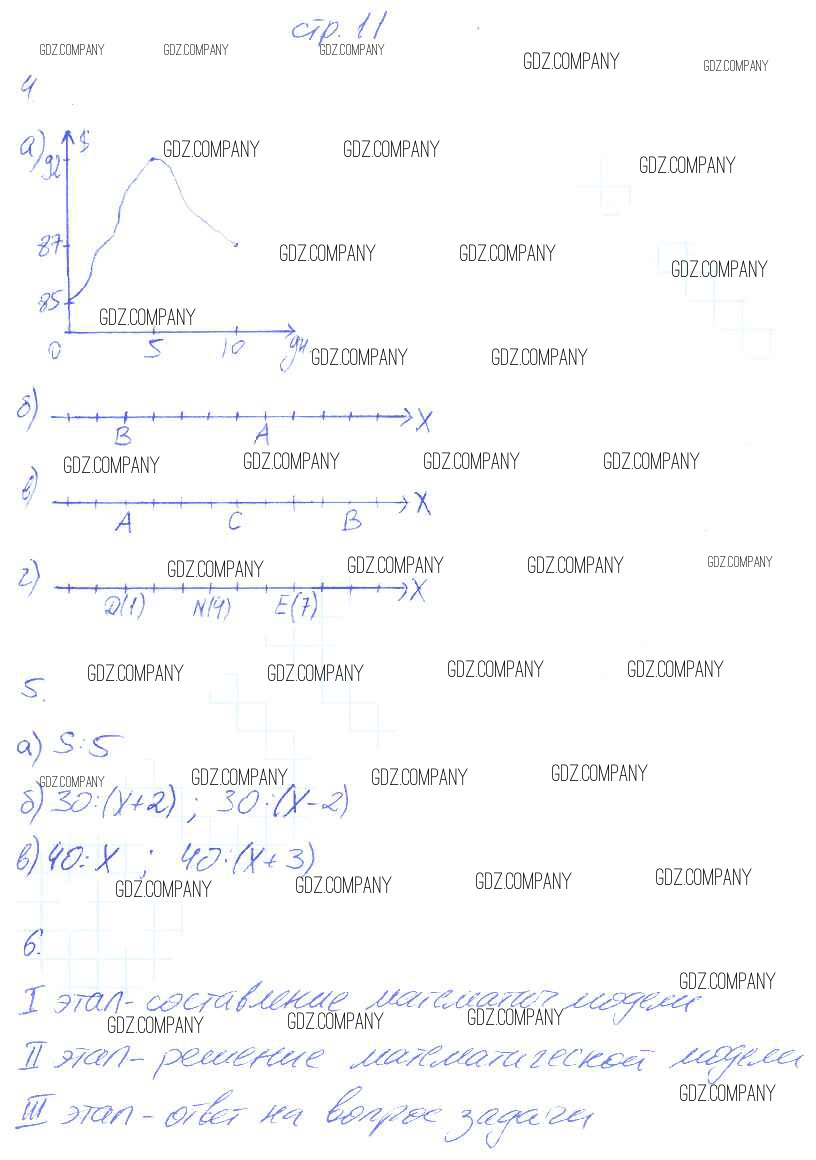 стр. 11
GDZ.COMPANY GDZ.COMPANY GDZ.COMPANY GDZ.COMPANY GDZ.COMPANY
4
а) $
92 GDZ.COMPANY GDZ.COMPANY GDZ.COMPANY
87 GDZ.COMPANY GDZ.COMPANY GDZ.COMPANY
85 GDZ.COMPANY
0 5 10 дн. GDZ.COMPANY GDZ.COMPANY
б) X
B A
GDZ.COMPANY GDZ.COMPANY GDZ.COMPANY GDZ.COMPANY
в) X
A C B
г) GDZ.COMPANY GDZ.COMPANY GDZ.COMPANY GDZ.COMPANY X
D(1) N(4) E(7)
GDZ.COMPANY GDZ.COMPANY GDZ.COMPANY GDZ.COMPANY
5.
а) S:5
GDZ.COMPANY GDZ.COMPANY GDZ.COMPANY GDZ.COMPANY
б) 30:(X+2) ; 30:(X-2)
в) 40:X ; 40:(X+3)
GDZ.COMPANY GDZ.COMPANY GDZ.COMPANY GDZ.COMPANY
6.
GDZ.COMPANY
I этап - составление математич модели
GDZ.COMPANY GDZ.COMPANY GDZ.COMPANY
II этап - решение математической модели
GDZ.COMPANY
III этап - ответ на вопрос задачи